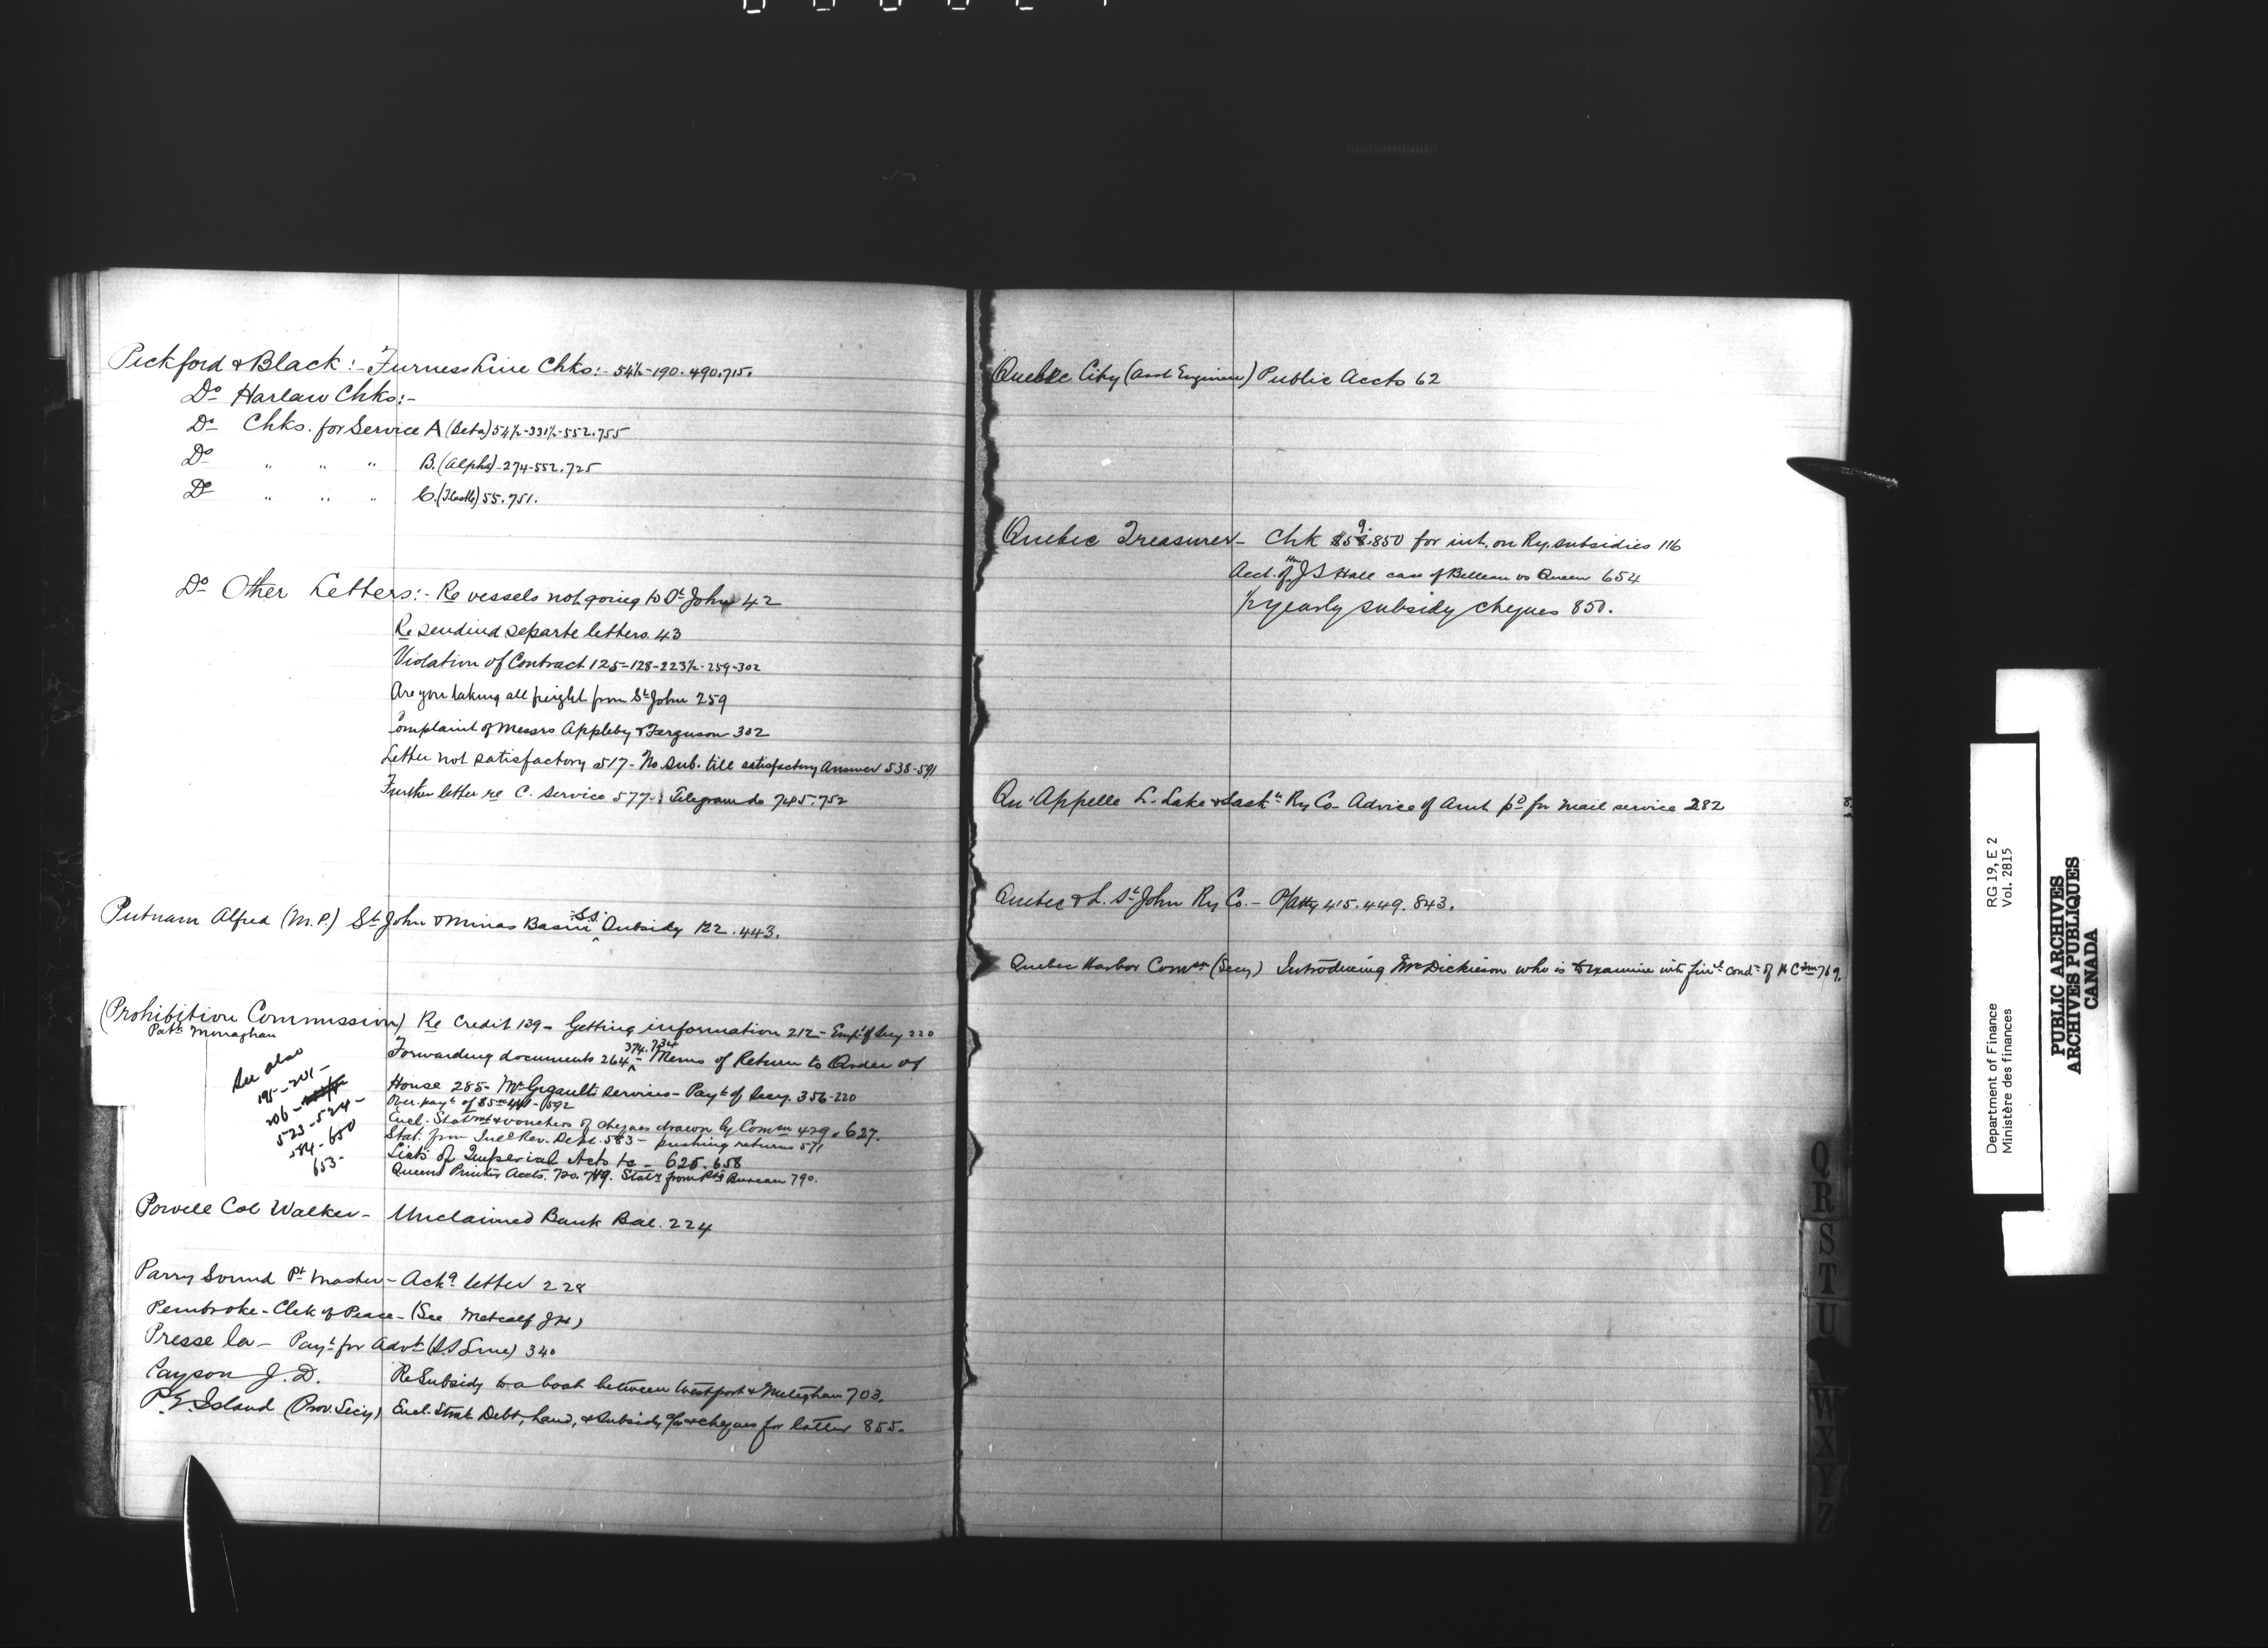 Pickford & Black:- Furness Line Chks:- 54½-190.490.715.
Do Harlaw Chks:-
Do Chks. for Service A (Beta) 54½-331½-552.755
Do " " " B. (Alpha)-274-552.725
Do " " " C. 55.751.
Do Other Letters:- Re vessels not going to St John 42
Re sendind separte letters. 43
Violation of Contract 125-128-223½-259-302
Are you taking all freight from St John 259
Complaint of Messrs Appleby & Ferguson 302
Letter not satisfactory 517- No sub. till satisfactory Answer 538-591
Further letter re C. Service 577- Telegram do 745.752
Putnam Alfred (M.P.) St John & Minas Basin S.S. Subsidy 122.443.
(Prohibition Commission) Re Credit 139- Getting information 212- Empt of Secy 220
Patk Monaghan
Forwarding documents 264- 374.734 Memo of Return to Order of
House 285- Mr Gigault's services- Payt of Secy. 356-220
Over payt of 592
Encl. Statmt & vouchers of cheques drawn by Comsn 429.627.
Stat. from Inld Rev. Dept. 583- pushing returns 571
Lists of Imperial Acts &c- 625.658
Queens Printer Accts. 720.749. Statt from Bureau 790.
See also
195-201-
206-
523-524-
584-650
653-
Powell Col Walker- Unclaimed Bank Bal. 224
Parry Sound Pt Master- Ackg letter 228
Pembroke- Clek of Peace- (See Metcalf JH)
Presse La- Payt for Advt (S.S Line) 340
Payson J.D. Re Subsidy to a boat between Westport & Meteghan 703.
P.E. Island (Prov. Secy) Encl. Statt Debt, Land, & Subsidy a/cs & cheques for latter 855.
Quebec City (Asst Engineer) Public Accts 62
Quebec Treasurer- Chk $59.850 for int. on Ry. subsidies 116
Acct. of Hon J S Hall case of Belleau vs Queen 654
½ yearly subsidy cheques 850.
Qu'Appelle L. Lake & Saskn Ry Co- Advice of Amt pd for mail service 282
Quebec & L. St John Ry Co.- P/Atty 415.449.843.
Quebec Harbor Comrs (Secy) Introducing Mr Dickieson who is to examine into finl condn of H Csrs 769.
Q
R
S
T
U
W
X
Y
Z
Department of Finance RG 19, E 2
Ministère des finances Vol. 2815
PUBLIC ARCHIVES
ARCHIVES PUBLIQUES
CANADA